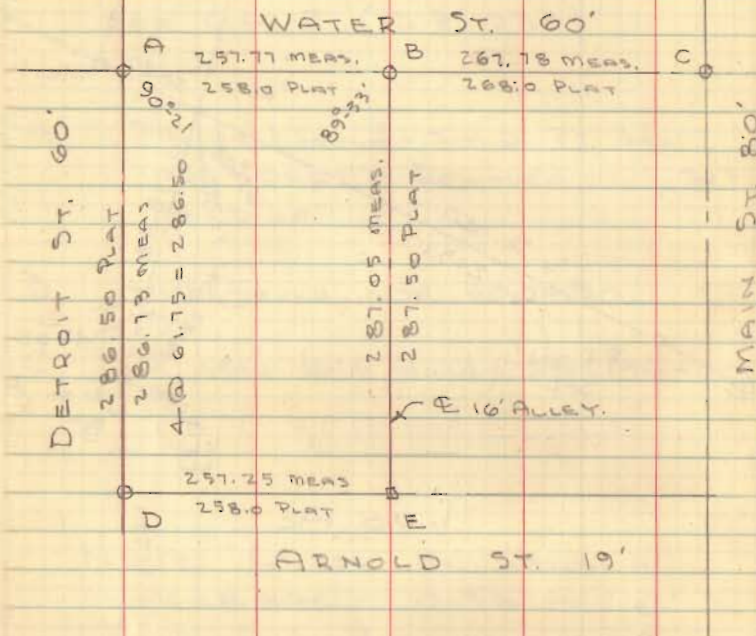 WATER ST. 60'
A
257.77 MEAS.
B
267.78 MEAS.
C
258.0 PLAT
268.0 PLAT
90°-21'
89°-33'
DETROIT ST. 60'
286.50 PLAT
286.73 MEAS
4 @ 61.75 = 286.50
287.05 MEAS.
287.50 PLAT
MAIN ST 80'
℄ 16' ALLEY.
257.25 MEAS
258.0 PLAT
D
E
ARNOLD ST. 19'